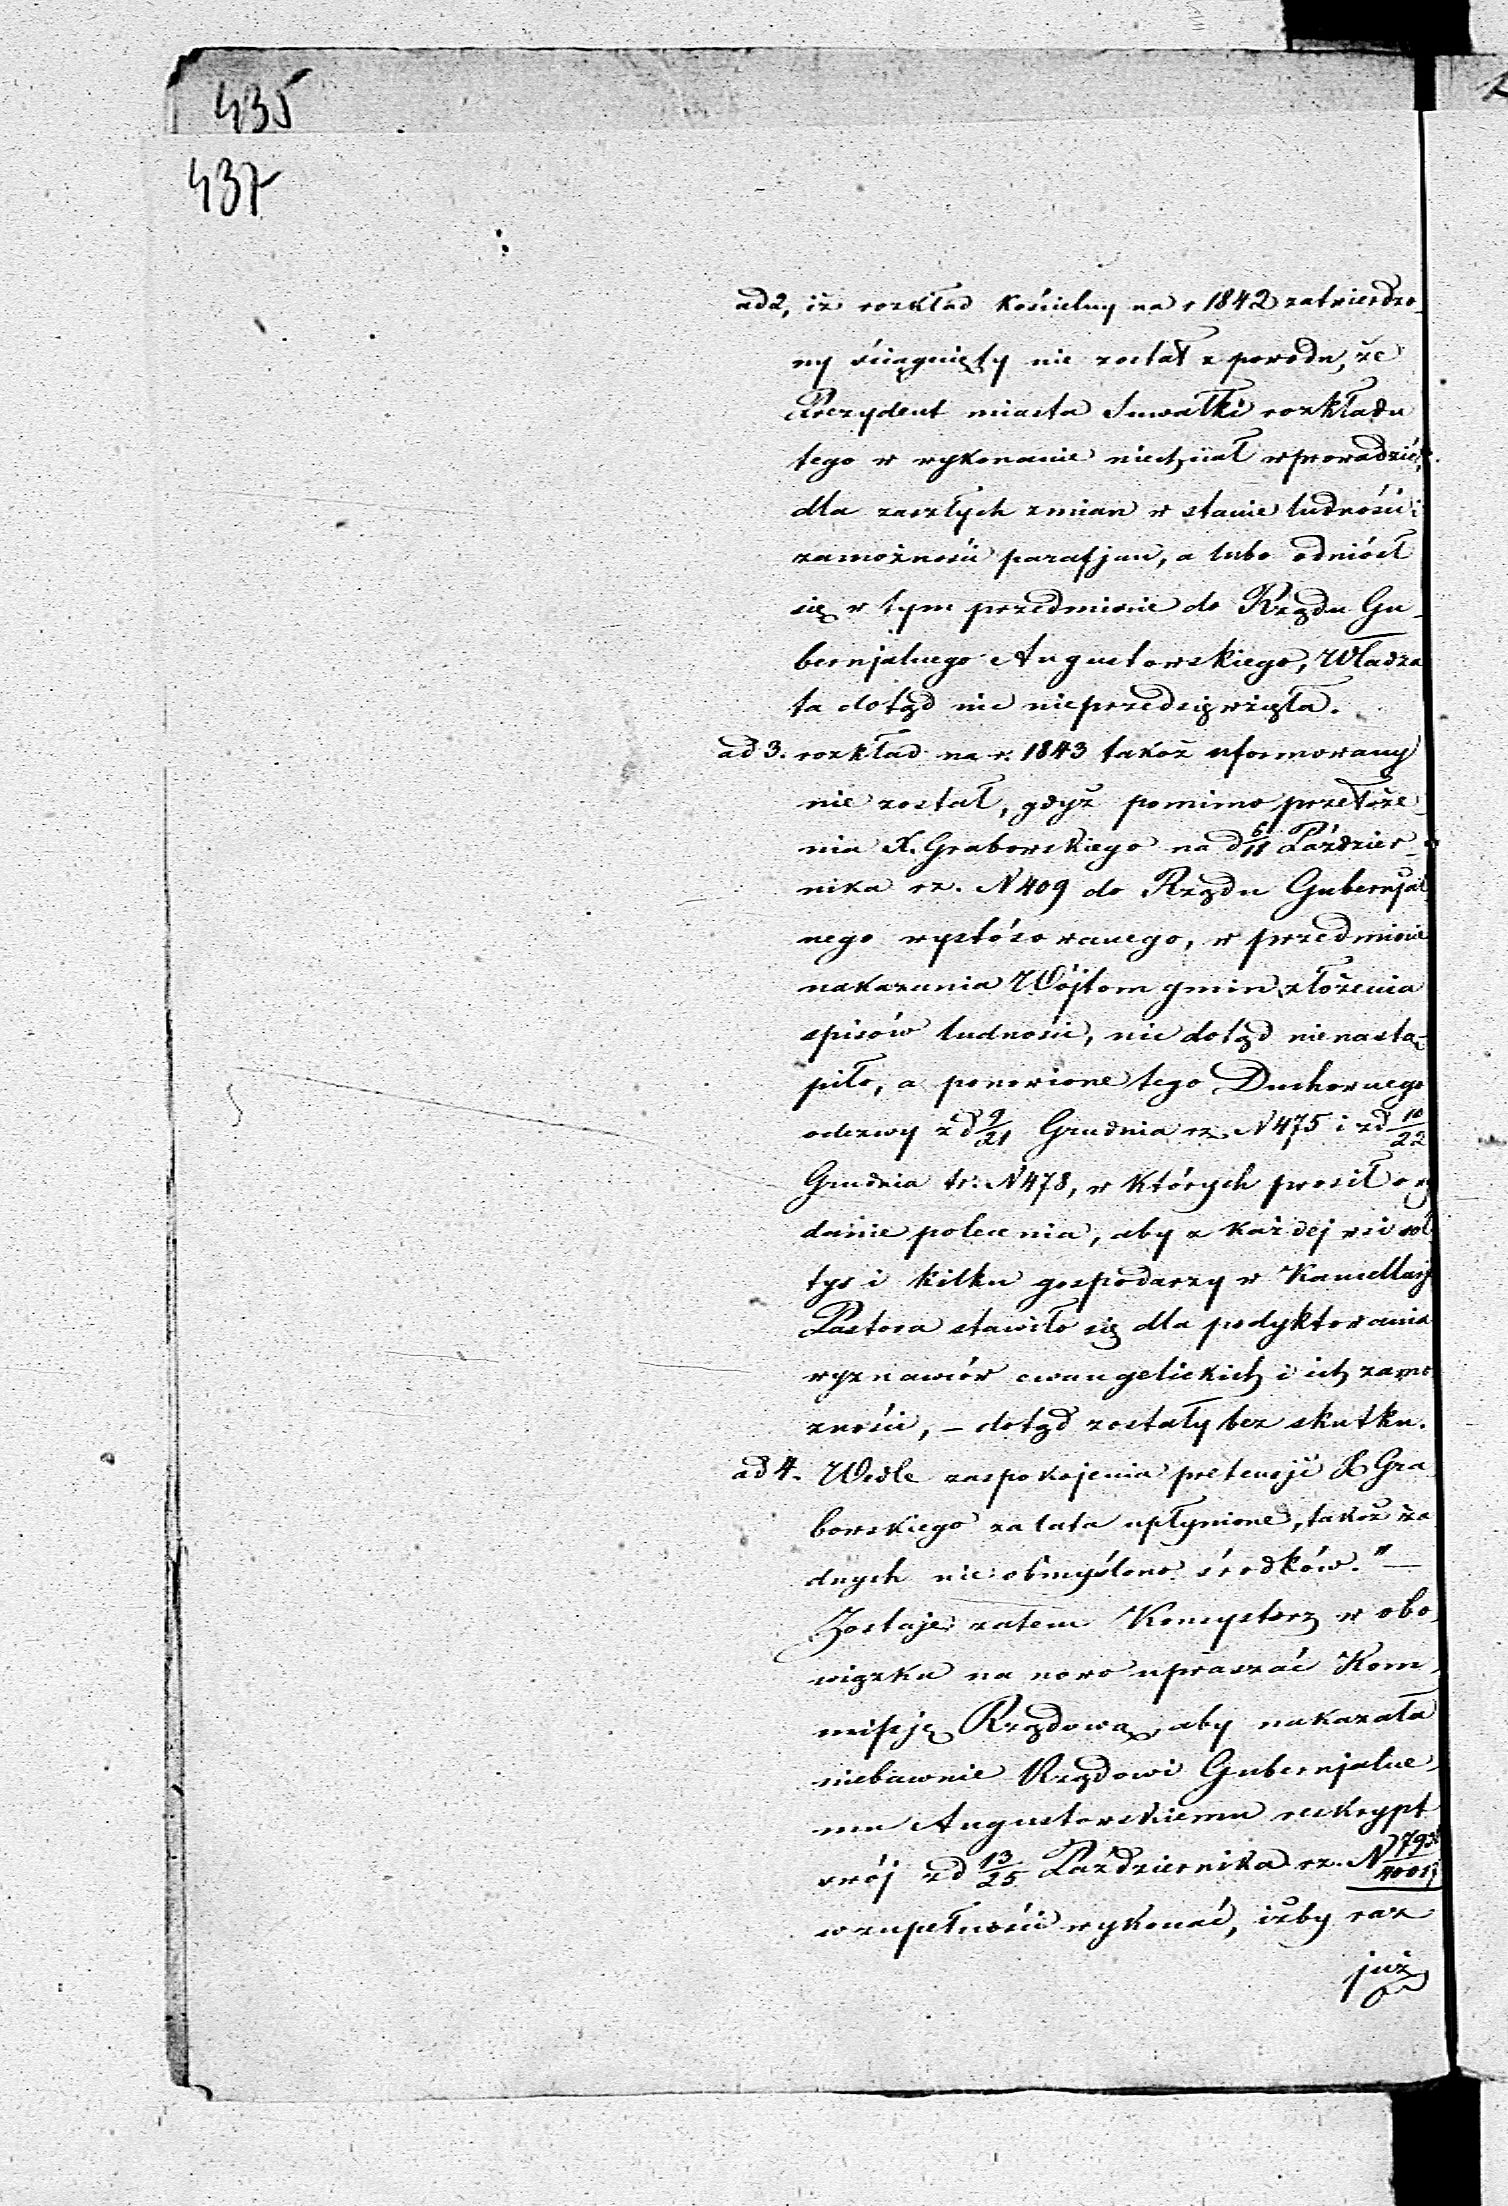 435
437
ad 2, iż rozkład kościelny na r 1842 zatwierdzo_
ny ściągnięty nie został z powodu, że
Prezydent miasta Suwałki rozkładu
tego w wykonanie niechciał wprowadzić,
dla zaszłych zmian w stanie ludności i
zamożności parafjan, a lubo odniósł
się w tym przedmiocie do Rządu Gu_
bernjalnego Augustowskiego, Władza
ta dotąd nic nieprzedsięwzięła.
ad 3. rozkład na r. 1843 takoż uformowany
nie został, gdyż pomimo przełoże
nia X. Grabowskiego na d 6/18 Paździer_
nika rz. N 409 do Rządu Gubernjal
nego wystósowanego, w przedmiocie
nakazania Wójtom gmin złożenia
spisów ludności, nic dotąd nienastą-
piło, a ponowione tego Duchownego
odezwy z d 9/21 Grudnia rz. N 475 i z d 10/22
Grudnia tr. N 478, w których prosił o wy
danie polecenia, aby z każdej wsi soł
tys i kilku gospodarzy w Kancellarji
Pastora stawiło się dla podyktowania
wyznawców ewangelickich i ich zamo
żności, – dotąd zostały bez skutku.
ad 4. Wedle zaspokojenia pretensji X Gra
bowskiego za lata upłynione, takoż ża
dnych nie obmyślono środków." —
Zostaje zatem Konsystorz w obo_
wiązku na nowo upraszać Kom_
missję Rządową, aby nakazała
niebawnie Rządowi Gubernjalne_
mu Augustowskiemu reskrypt
swój z d 13/25 Października rz. N
w zupełności wykonać, iżby raz
już